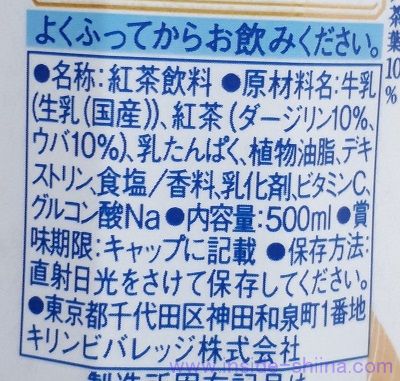 よくふってからお飲みください。
●名称:紅茶飲料 ●原材料名:牛乳
(生乳(国産))、紅茶(ダージリン10%、
ウバ10%)、乳たんぱく、植物油脂、デキ
ストリン、食塩/香料、乳化剤、ビタミンC、
グルコン酸Na ●内容量:500ml ●賞
味期限:キャップに記載 ●保存方法:
直射日光をさけて保存してください。
●東京都千代田区神田和泉町1番地
キリンビバレッジ株式会社
茶葉10%
www.inside-shiina.com